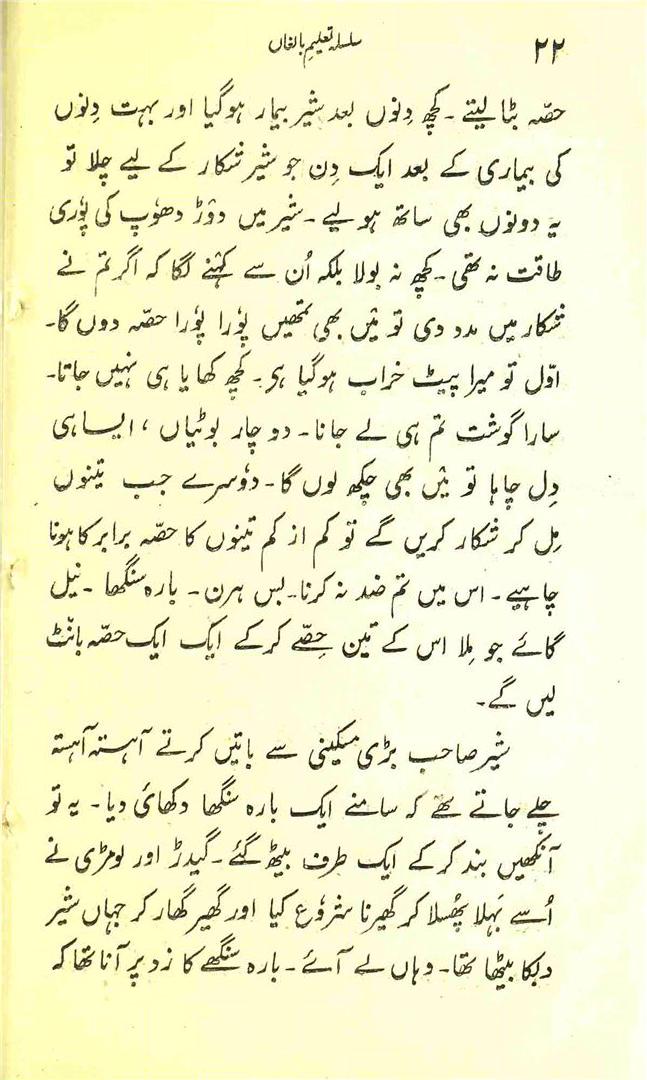 ۲۲
سلسلہ تعلیم بالغاں
حصّہ بٹا لیتے ۔ کچھ دِنوں بعد شیر بیمار ہوگیا اور بہت دِنوں
کی بیماری کے بعد ایک دِن جو شیر شکار کے لیے چلا تو
یہ دونوں بھی ساتھ ہو لیے ۔ شیر میں دوڑ دھوپ کی پُوری
طاقت نہ تھی ۔ کچھ نہ بولا بلکہ اُن سے کہنے لگا کہ اگر تم نے
شکار میں مدد دی تو مَیں بھی تمھیں پُورا پُورا حصّہ دوں گا۔
اوّل تو میرا پیٹ خراب ہوگیا ہی ۔ کچھ کھایا ہی نہیں جاتا۔
سارا گوشت تم ہی لے جانا ۔ دو چار بوٹیاں ، ایسا ہی
دِل چاہا تو مَیں بھی چکھ لوں گا ۔ دُوسرے جب تینوں
مِل کر شکار کریں گے تو کم از کم تینوں کا حصّہ برابر کا ہونا
چاہیے ۔ اس میں تم ضد نہ کرنا ۔ بس ہرن ۔ بارہ سنگھا ۔ نیل
گائے جو مِلا اس کے تین حِصّے کرکے ایک ایک حصّہ بانٹ
لیں گے ۔
شیر صاحب بڑی مسکینی سے باتیں کرتے آہستہ آہستہ
چلے جاتے تھے کہ سامنے ایک بارہ سنگھا دکھائی دیا ۔ یہ تو
آنکھیں بند کرکے ایک طرف بیٹھ گئے ۔ گیدڑ اور لومڑی نے
اُسے بَہلا پھُسلا کر گھیرنا شروع کیا اور گھیر گھار کر جہاں شیر
دبکا بیٹھا تھا ۔ وہاں لے آئے ۔ بارہ سنگھے کا زد پر آنا تھا کہ